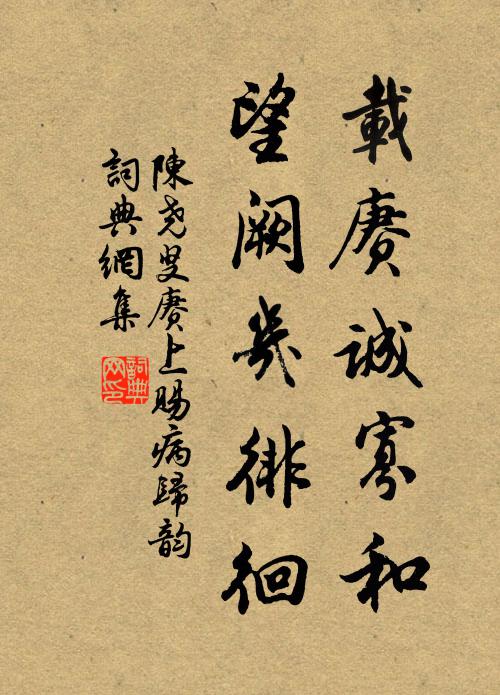 載賡誠寡和
望闕幾徘徊
陳堯叟賡上賜病歸韵
詞典網集
詞典网印